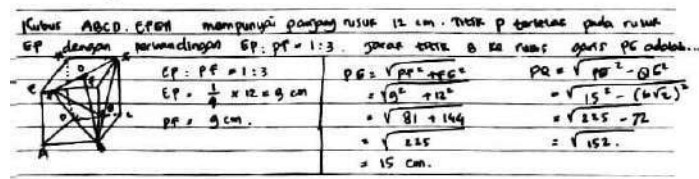 Kubus ABCD. EFGH mempunyai panjang rusuk 12 cm. Titik P terletak pada rusuk
EF dengan perbandingan EP : PF = 1 : 3. Jarak titik B ke ruas garis PG adalah...
EP : PF = 1 : 3
EP = 1/4 × 12 = 9 cm
PF = 9 cm.
PG = √PF² + FG²
= √9² + 12²
= √81 + 144
= √225
= 15 cm.
PQ = √PB² - QG²
= √15² - (6√2)²
= √225 - 72
= √152.